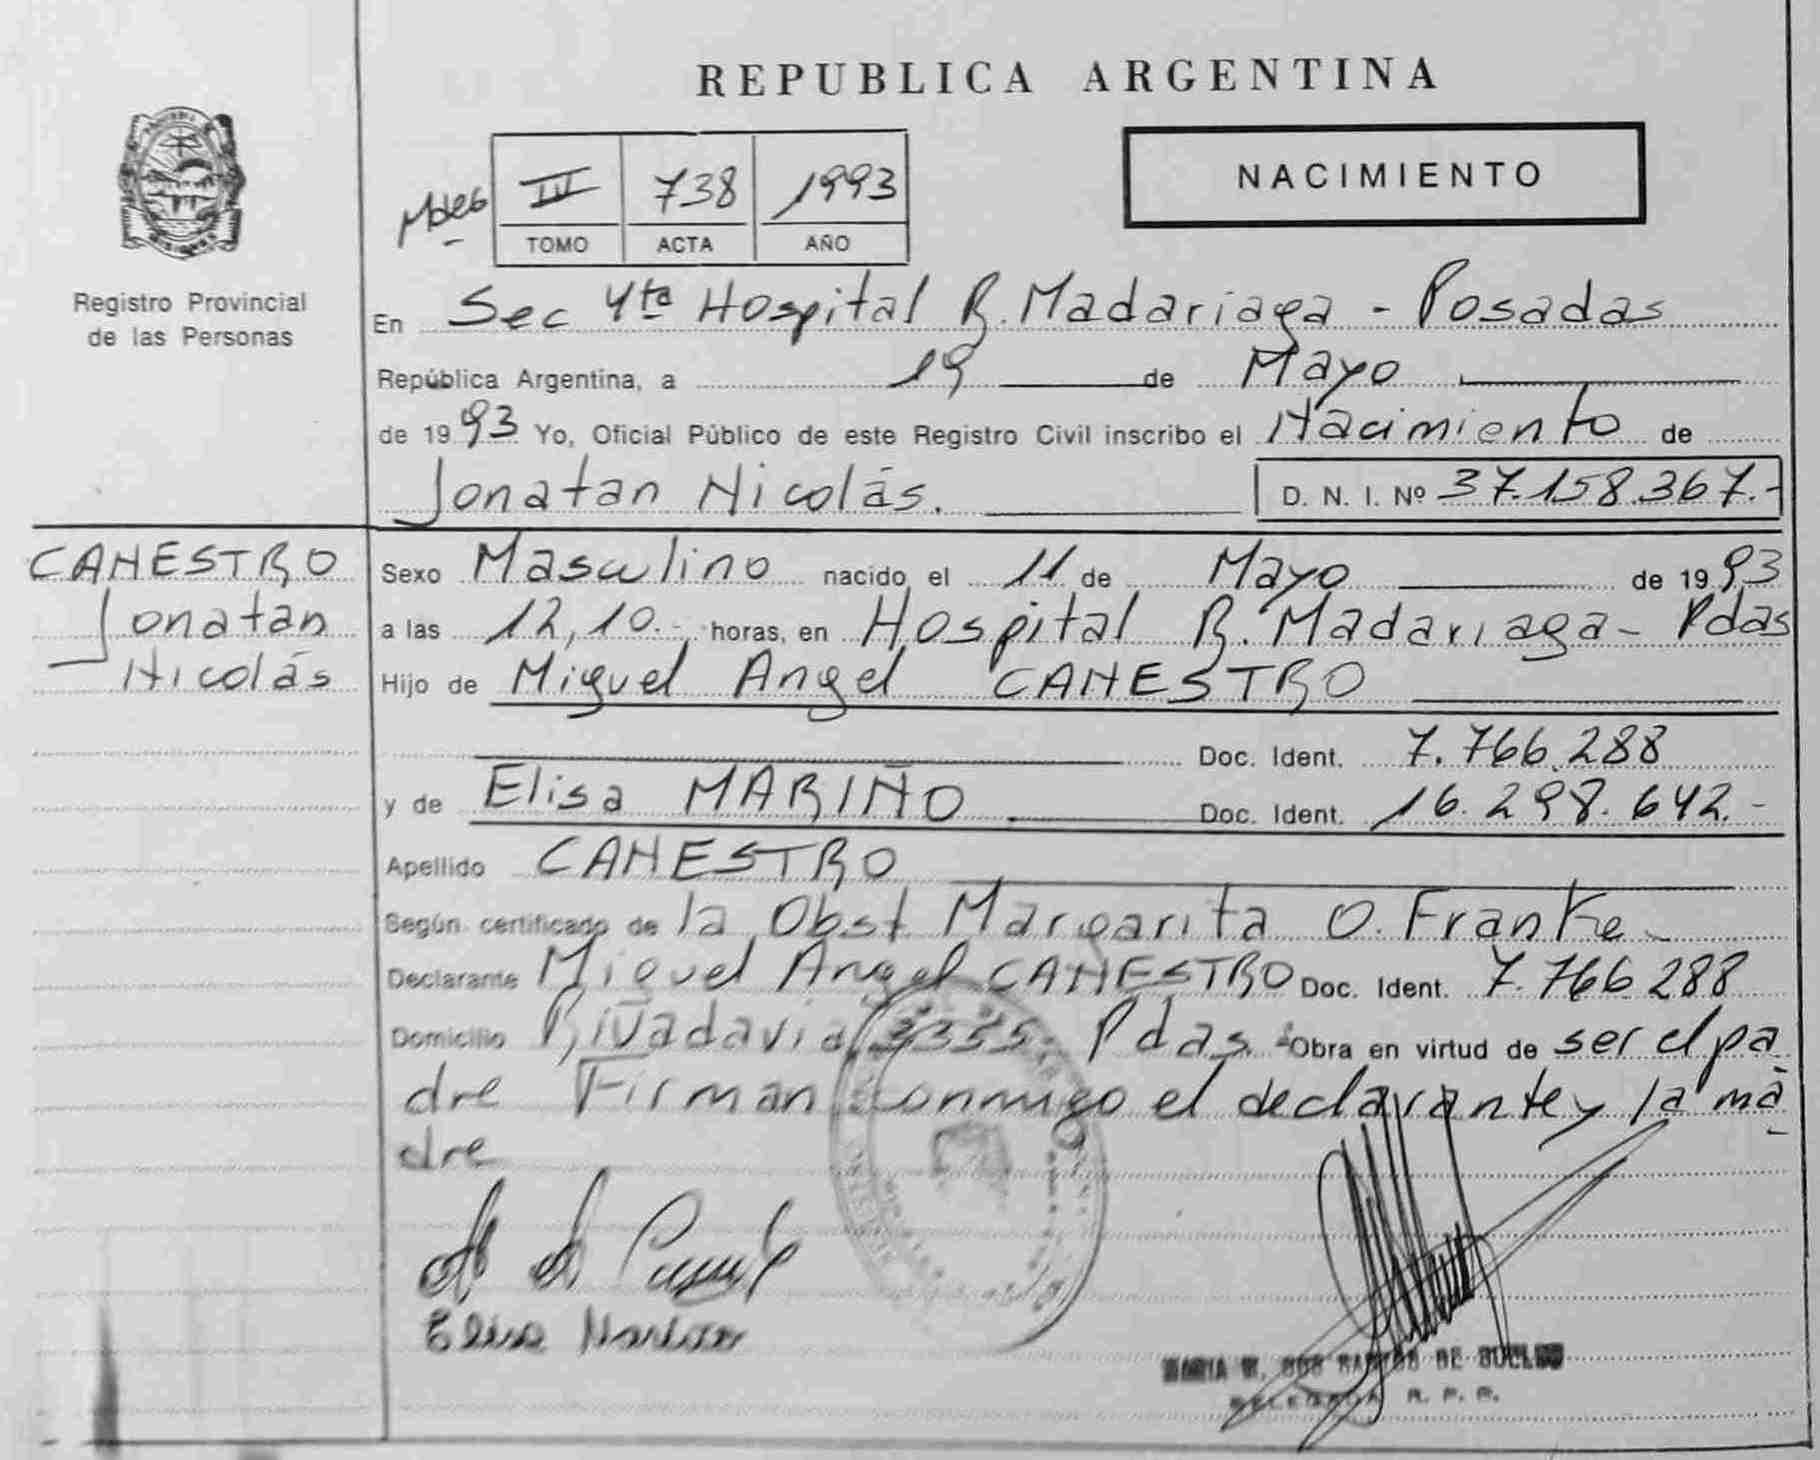 REPUBLICA ARGENTINA
NACIMIENTO
III 738 1993
TOMO ACTA AÑO
Registro Provincial
de las Personas
En Sec 4ta Hospital R. Madariaga - Posadas
República Argentina, a 19 de Mayo
de 1993 Yo, Oficial Público de este Registro Civil inscribo el Nacimiento de
Jonatan Nicolás. D. N. I. Nº 37.158.367.-
CANESTRO
Jonatan
Nicolás
Sexo Masculino nacido el 11 de Mayo de 1993
a las 12,10.- horas, en Hospital R. Madariaga - Pdas
Hijo de Miguel Angel CANESTRO
Doc. Ident. 7.766.288
y de Elisa MARIÑO Doc. Ident. 16.298.642.-
Apellido CANESTRO
Según certificado de la Obst Margarita O. Franke
Declarante Miguel Angel CANESTRO Doc. Ident. 7.766.288
Domicilio Rivadavia 3355 Pdas. Obra en virtud de ser el pa
dre Firman conmigo el declarante y la ma
dre
Elisa
MARIA DOS SANTOS DE
DELEGADA R. P. P.